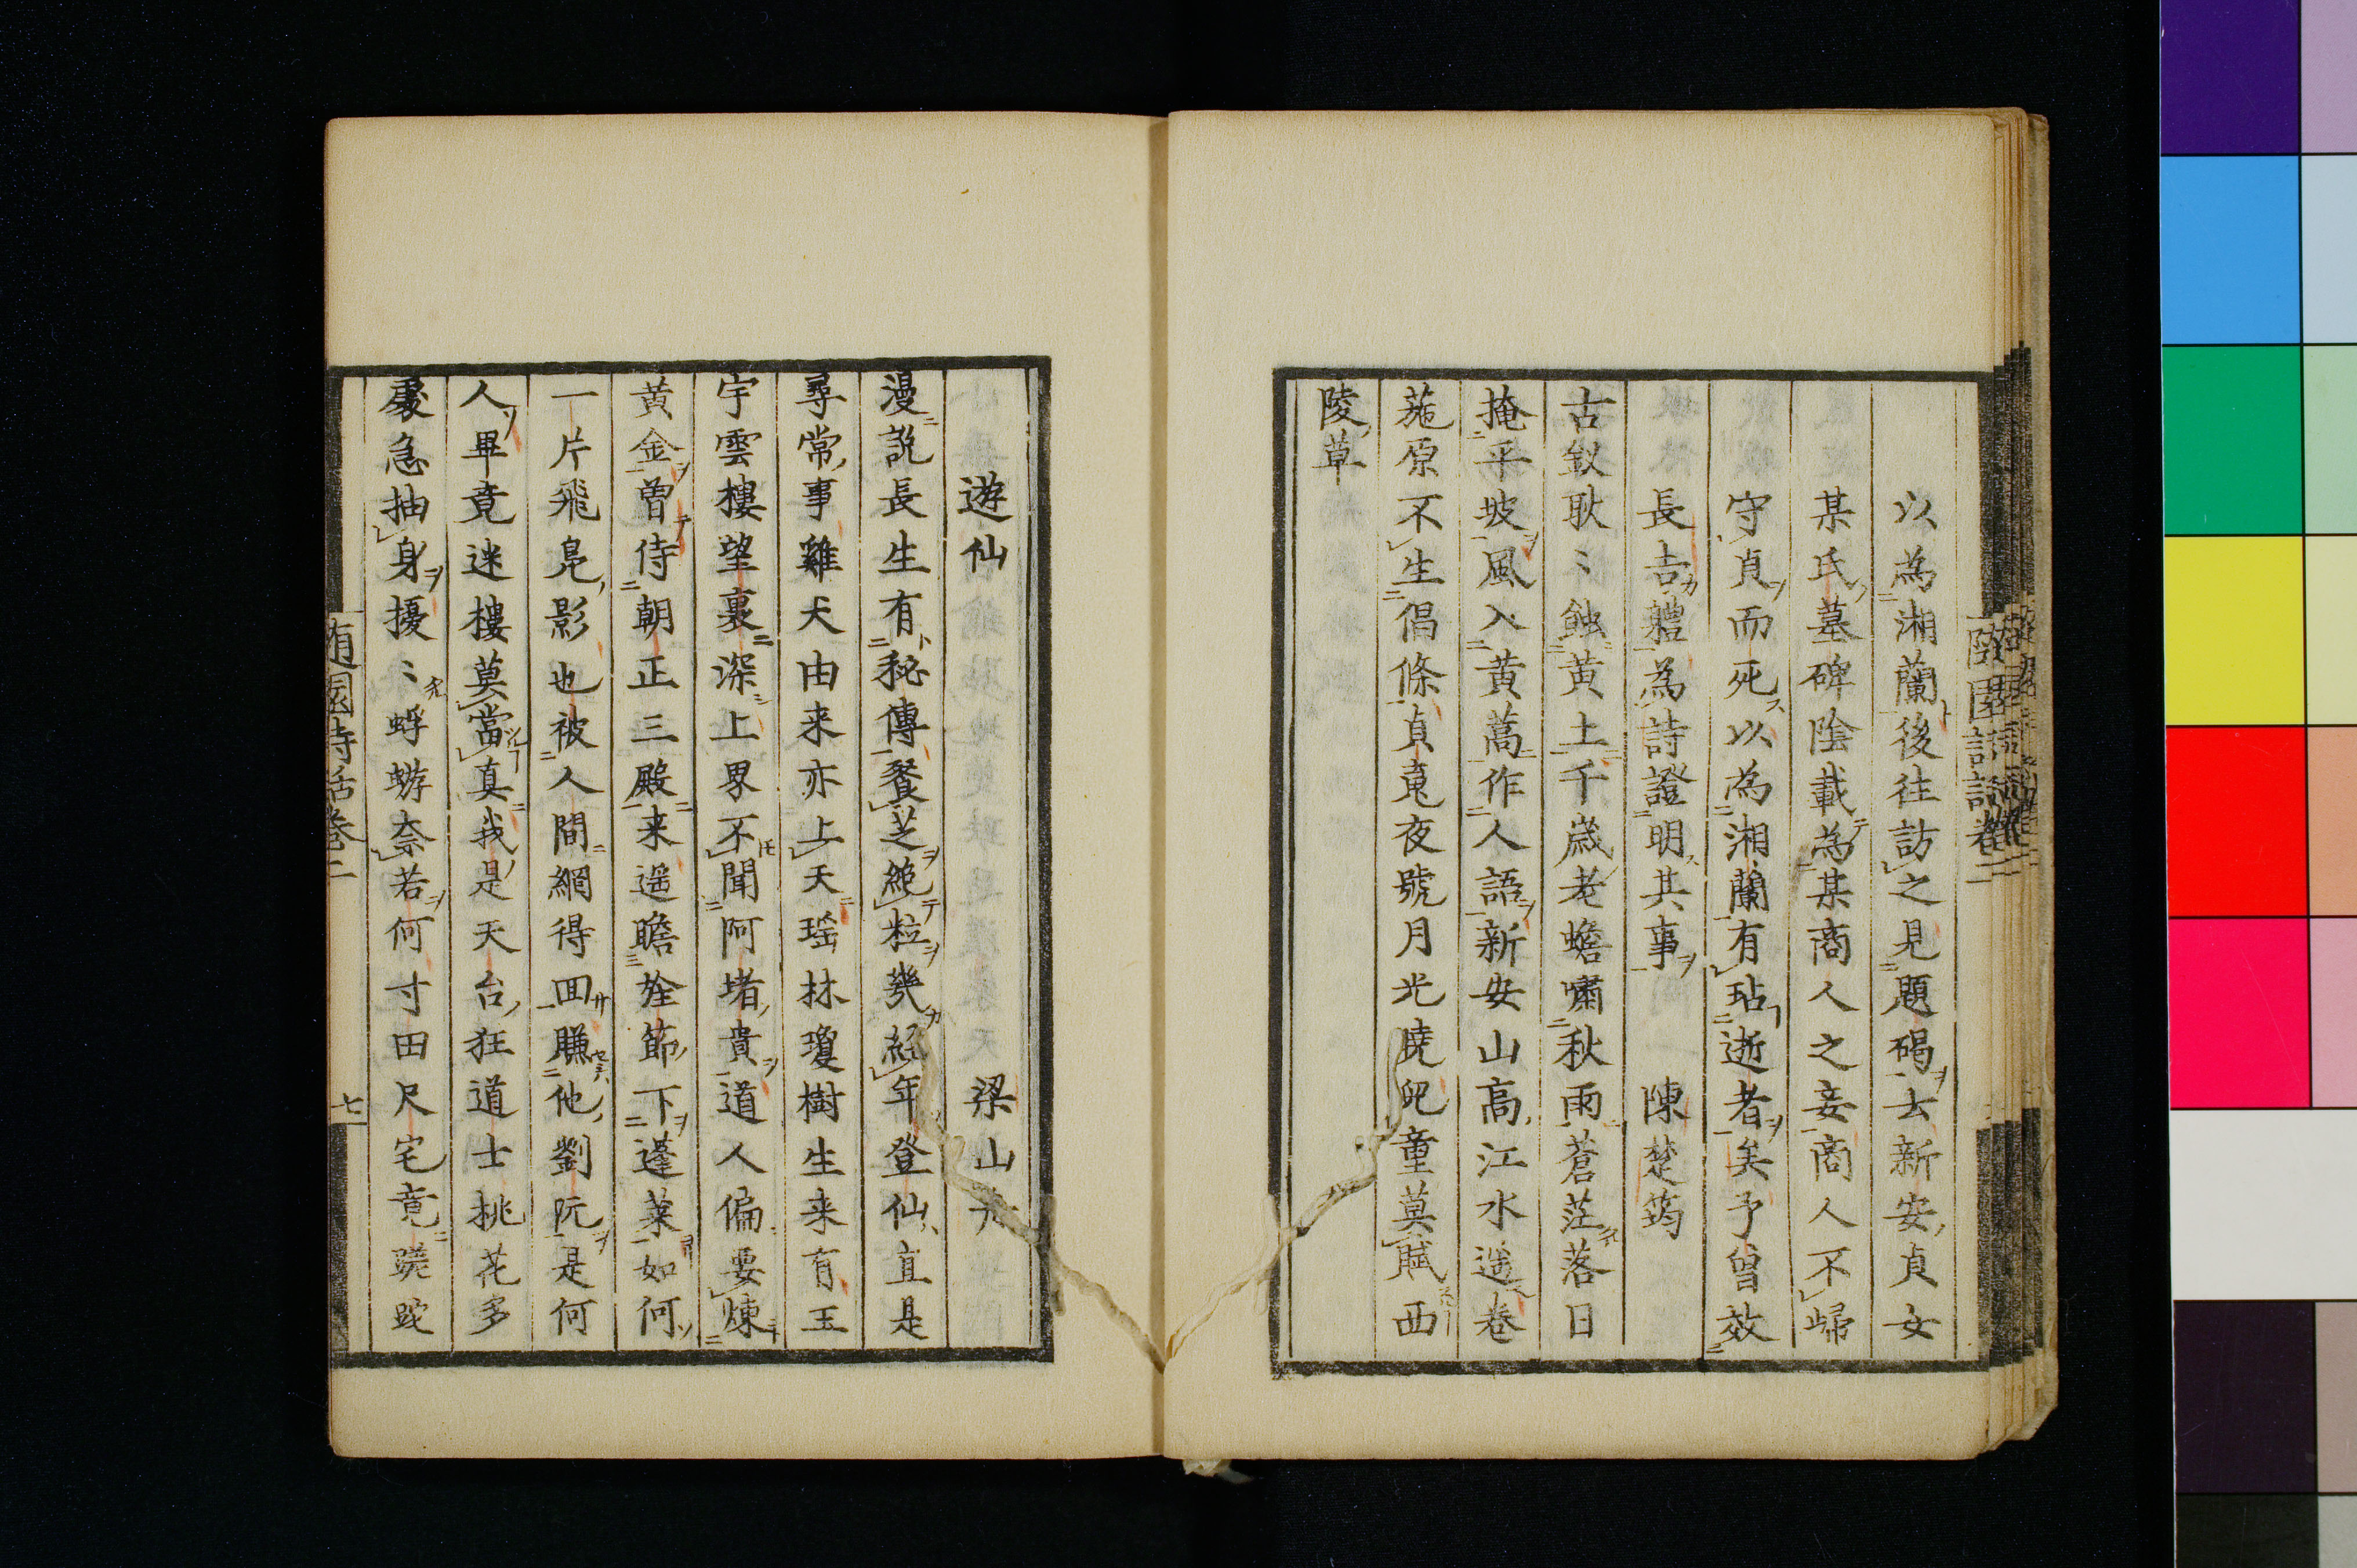 以為湘蘭後往訪之見題碣云新安貞女
某氏墓碑陰載為某商人之妾商人不歸
守貞而死以為湘蘭有玷逝者矣予曾效
長吉軆為詩證明其事 陳楚筠
古釵耿〻蝕黄土千歳老蟾嘯秋雨蒼茫落日
掩平坡風入黄蒿作人語新安山高江水遥卷
葹原不生倡條貞䰟夜號月光曉兒童莫賦西
陵草
遊仙 梁山舟
漫說長生有秘傳餐芝絶粒幾経年登仙直是
尋常事雞犬由来亦上天瑶林瓊樹生来有玉
宇雲樓望裏深上界不聞阿堵貴道人偏要煉
黄金曽侍朝正三殿来遥瞻〓節下蓬莱如何
一片飛鳧影也被人間網得囬賺他劉阮是何
人畢竟迷樓莫當真我是天台狂道士桃花多
處急抽身擾〻蜉蝣奈若何寸田尺宅竟蹉跎
随園詩話巻二 七